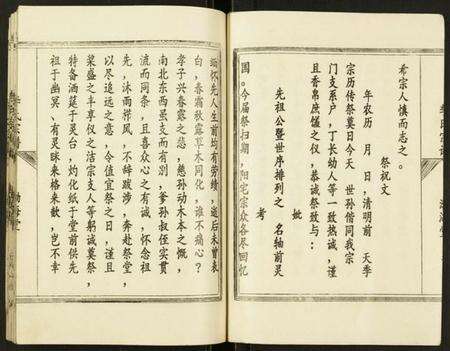 希宗人慎而志之。
祭祝文
年农历 月 日，清明前 天季
宗历传祭奠日今天 世孙偕同我宗
门支系户，丁长幼人等一致热诚，谨
且香帛庶馐之仪，恭诚祭致与：
先祖公暨世序排列之 名轴前灵
考 妣
国。今届祭扫期，阳宅宗众各尽回忆
缅怀先人生前均有劳绩，逝后未曾表
白，春霜秋露草木同化，谁不痛心？
孝子兴春露之悲，慈孙动木本之慨，
南北东西虽支而有别，爹孙叔侄实贯
流而同条，且喜众心之有诚，怀念祖
先，沐雨栉风，不辞跋涉，奔赴祭堂，
以尽追远之意，今值宜祭之日，谨且
粢盛之丰享仪之洁宗支人等躬诚奠祭，
特备酒筵于灵台，灼化纸于堂前侯先
祖于幽冥、有灵咪来格来歆，岂不幸